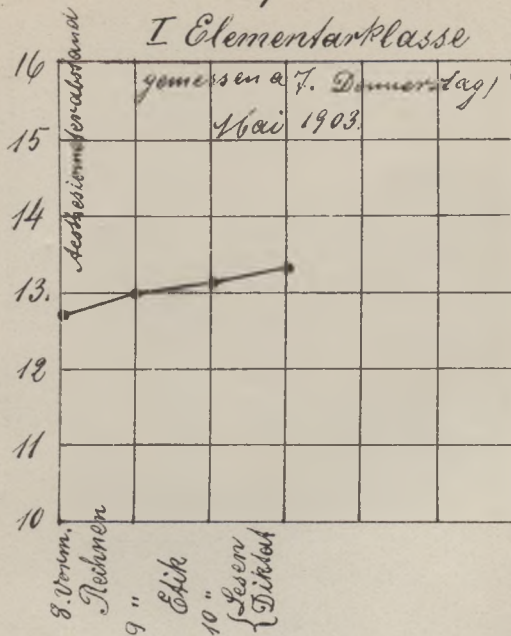 I Elementarklasse
gemessen a 7. Donnerstag/
Mai 1903.
Aesthesiometerabstand
16
15
14
13.
12
11
10
8. Vorm.
Reihnen
9 "
Etik
10 "
{Lesen
{Diktat